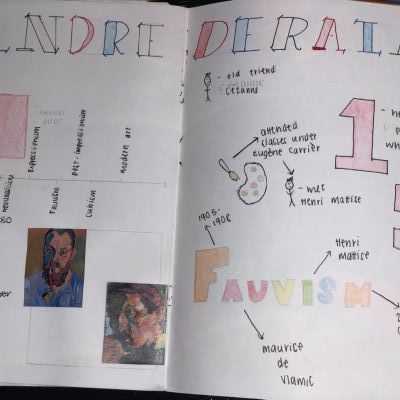 NDRE DERAI
- old friend
Cézanne
attended
classes under
Eugène Carrièr
- met
Henri Matisse
1905-
1908
FAUVISM
Henri
Matisse
maurice
de
vlamic
1
Expressionism
Post-impressionism
modern art
Fauvism
Cubism
80